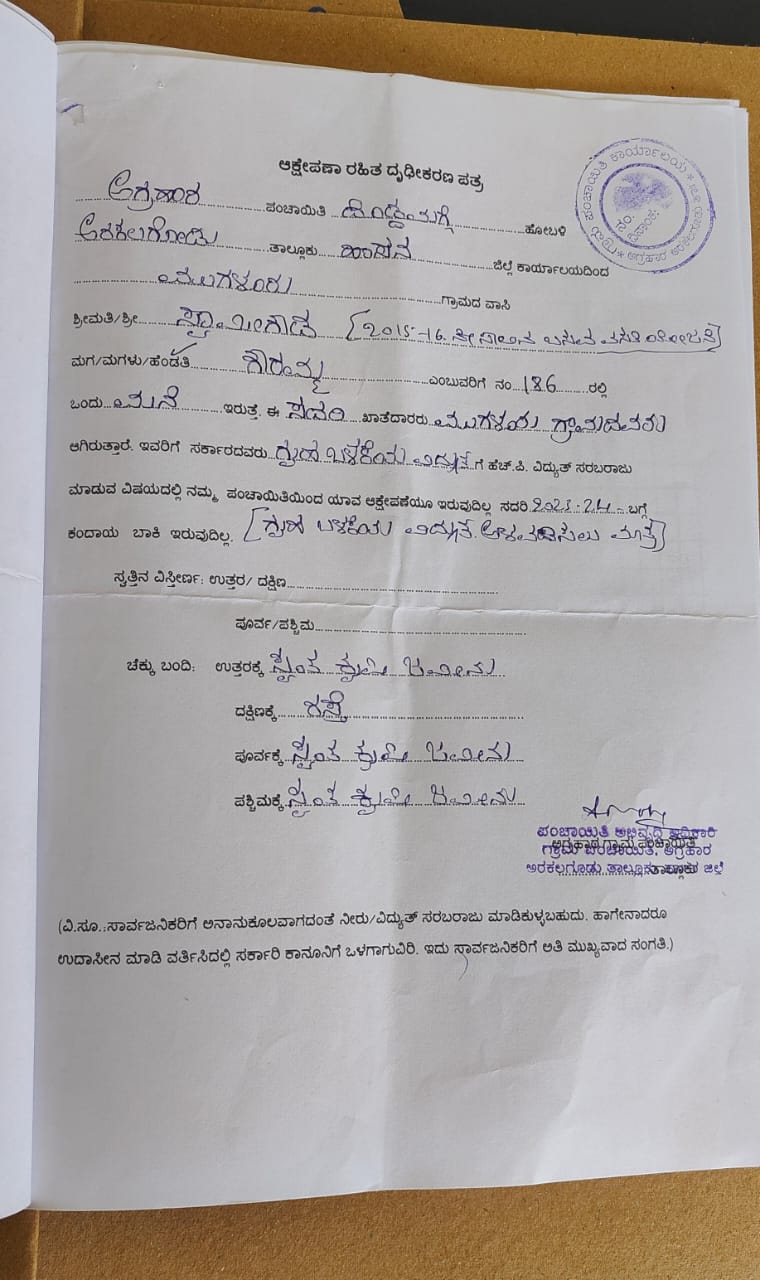 ಆಕ್ಷೇಪಣಾ ರಹಿತ ದೃಢೀಕರಣ ಪತ್ರ
ಅಗ್ರಹಾರ ಪಂಚಾಯಿತಿ ದೊಡ್ಡಮಗ್ಗೆ ಹೋಬಳಿ
ಅರಕಲಗೋಡು ತಾಲ್ಲೂಕು ಹಾಸನ ಜಿಲ್ಲೆ ಕಾರ್ಯಾಲಯದಿಂದ
ಮುಗಳೂರು ಗ್ರಾಮದ ವಾಸಿ
ಶ್ರೀಮತಿ/ಶ್ರೀ ಸ್ವಾಮೀಗೌಡ [2015-16. ನೇ ಸಾಲಿನ ಬಸವ ವಸತಿ ಯೋಜನೆ]
ಮಗ/ಮಗಳು/ಹೆಂಡತಿ ಗೌರಮ್ಮ ಎಂಬುವರಿಗೆ ನಂ 186 ರಲ್ಲಿ
ಒಂದು ಮನೆ ಇರುತ್ತೆ. ಈ ಸದರಿ ಖಾತೆದಾರರು ಗ್ರಾಮದವರು
ಆಗಿರುತ್ತಾರೆ. ಇವರಿಗೆ ಸರ್ಕಾರದವರು ಗೃಹ ಬಳಕೆಯ ವಿದ್ಯುತ್ ಗೆ ಹೆಚ್.ಪಿ. ವಿದ್ಯುತ್ ಸರಬರಾಜು
ಮಾಡುವ ವಿಷಯದಲ್ಲಿ ನಮ್ಮ ಪಂಚಾಯಿತಿಯಿಂದ ಯಾವ ಆಕ್ಷೇಪಣೆಯೂ ಇರುವುದಿಲ್ಲ ಸದರಿ 2023-24 ಬಗ್ಗೆ
ಕಂದಾಯ ಬಾಕಿ ಇರುವುದಿಲ್ಲ. [ಗೃಹ ಬಳಕೆಯ ವಿದ್ಯುತ್ ಅಳವಡಿಸಲು ಮಾತ್ರ]
ಸ್ವತ್ತಿನ ವಿಸ್ತೀರ್ಣ: ಉತ್ತರ/ ದಕ್ಷಿಣ
ಪೂರ್ವ/ಪಶ್ಚಿಮ
ಚೆಕ್ಕು ಬಂದಿ: ಉತ್ತರಕ್ಕೆ ಸ್ವಂತ ಕೃಷಿ ಜಮೀನು
ದಕ್ಷಿಣಕ್ಕೆ ರಸ್ತೆ
ಪೂರ್ವಕ್ಕೆ ಸ್ವಂತ ಕೃಷಿ ಜಮೀನು
ಪಶ್ಚಿಮಕ್ಕೆ ಸ್ವಂತ ಕೃಷಿ ಜಮೀನು
ಪಂಚಾಯಿತಿ ಅಭಿವೃದ್ಧಿ ಅಧಿಕಾರಿ
ಗ್ರಾಮ ಪಂಚಾಯಿತಿ, ಅಗ್ರಹಾರ
ಅರಕಲಗೂಡು ತಾಲ್ಲೂಕು ಜಿಲ್ಲೆ
(ವಿ.ಸೂ.:ಸಾರ್ವಜನಿಕರಿಗೆ ಅನಾನುಕೂಲವಾಗದಂತೆ ನೀರು/ವಿದ್ಯುತ್ ಸರಬರಾಜು ಮಾಡಿಕುಳ್ಳಬಹುದು. ಹಾಗೇನಾದರೂ
ಉದಾಸೀನ ಮಾಡಿ ವರ್ತಿಸಿದಲ್ಲಿ ಸರ್ಕಾರಿ ಕಾನೂನಿಗೆ ಒಳಗಾಗುವಿರಿ. ಇದು ಸಾರ್ವಜನಿಕರಿಗೆ ಅತಿ ಮುಖ್ಯವಾದ ಸಂಗತಿ.)